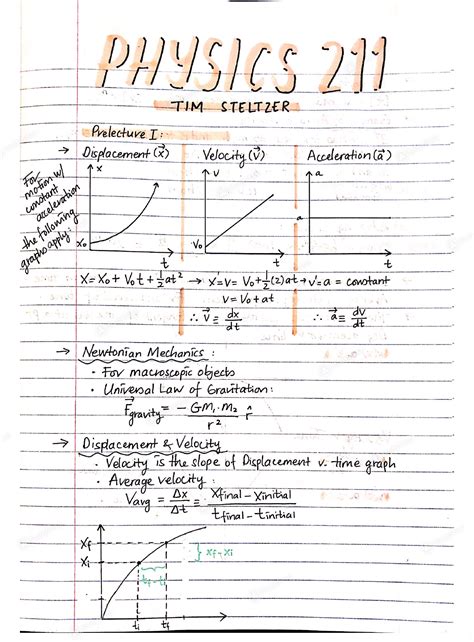 PHYSICS 211
TIM STELTZER
Prelecture I:
→ Displacement (x⃗) Velocity (v⃗) Acceleration (a⃗)
For motion w/ constant acceleration the following graphs apply:
x v a
x₀ v₀ a
t t t
x = x₀ + v₀t + ½at² → x' = v = v₀ + ½(2)at → v' = a = constant
v = v₀ + at
∴ v⃗ ≡ dx/dt ∴ a⃗ ≡ dv/dt
→ Newtonian Mechanics:
• For macroscopic objects
• Universal Law of Gravitation:
F⃗gravity = -GM₁·m₂/r² r̂
→ Displacement & Velocity
• Velocity is the slope of Displacement v. time graph
• Average velocity:
Vavg = Δx/Δt = xfinal - xinitial / tfinal - tinitial
xf
xf - xi
xi
tf - ti
ti tf